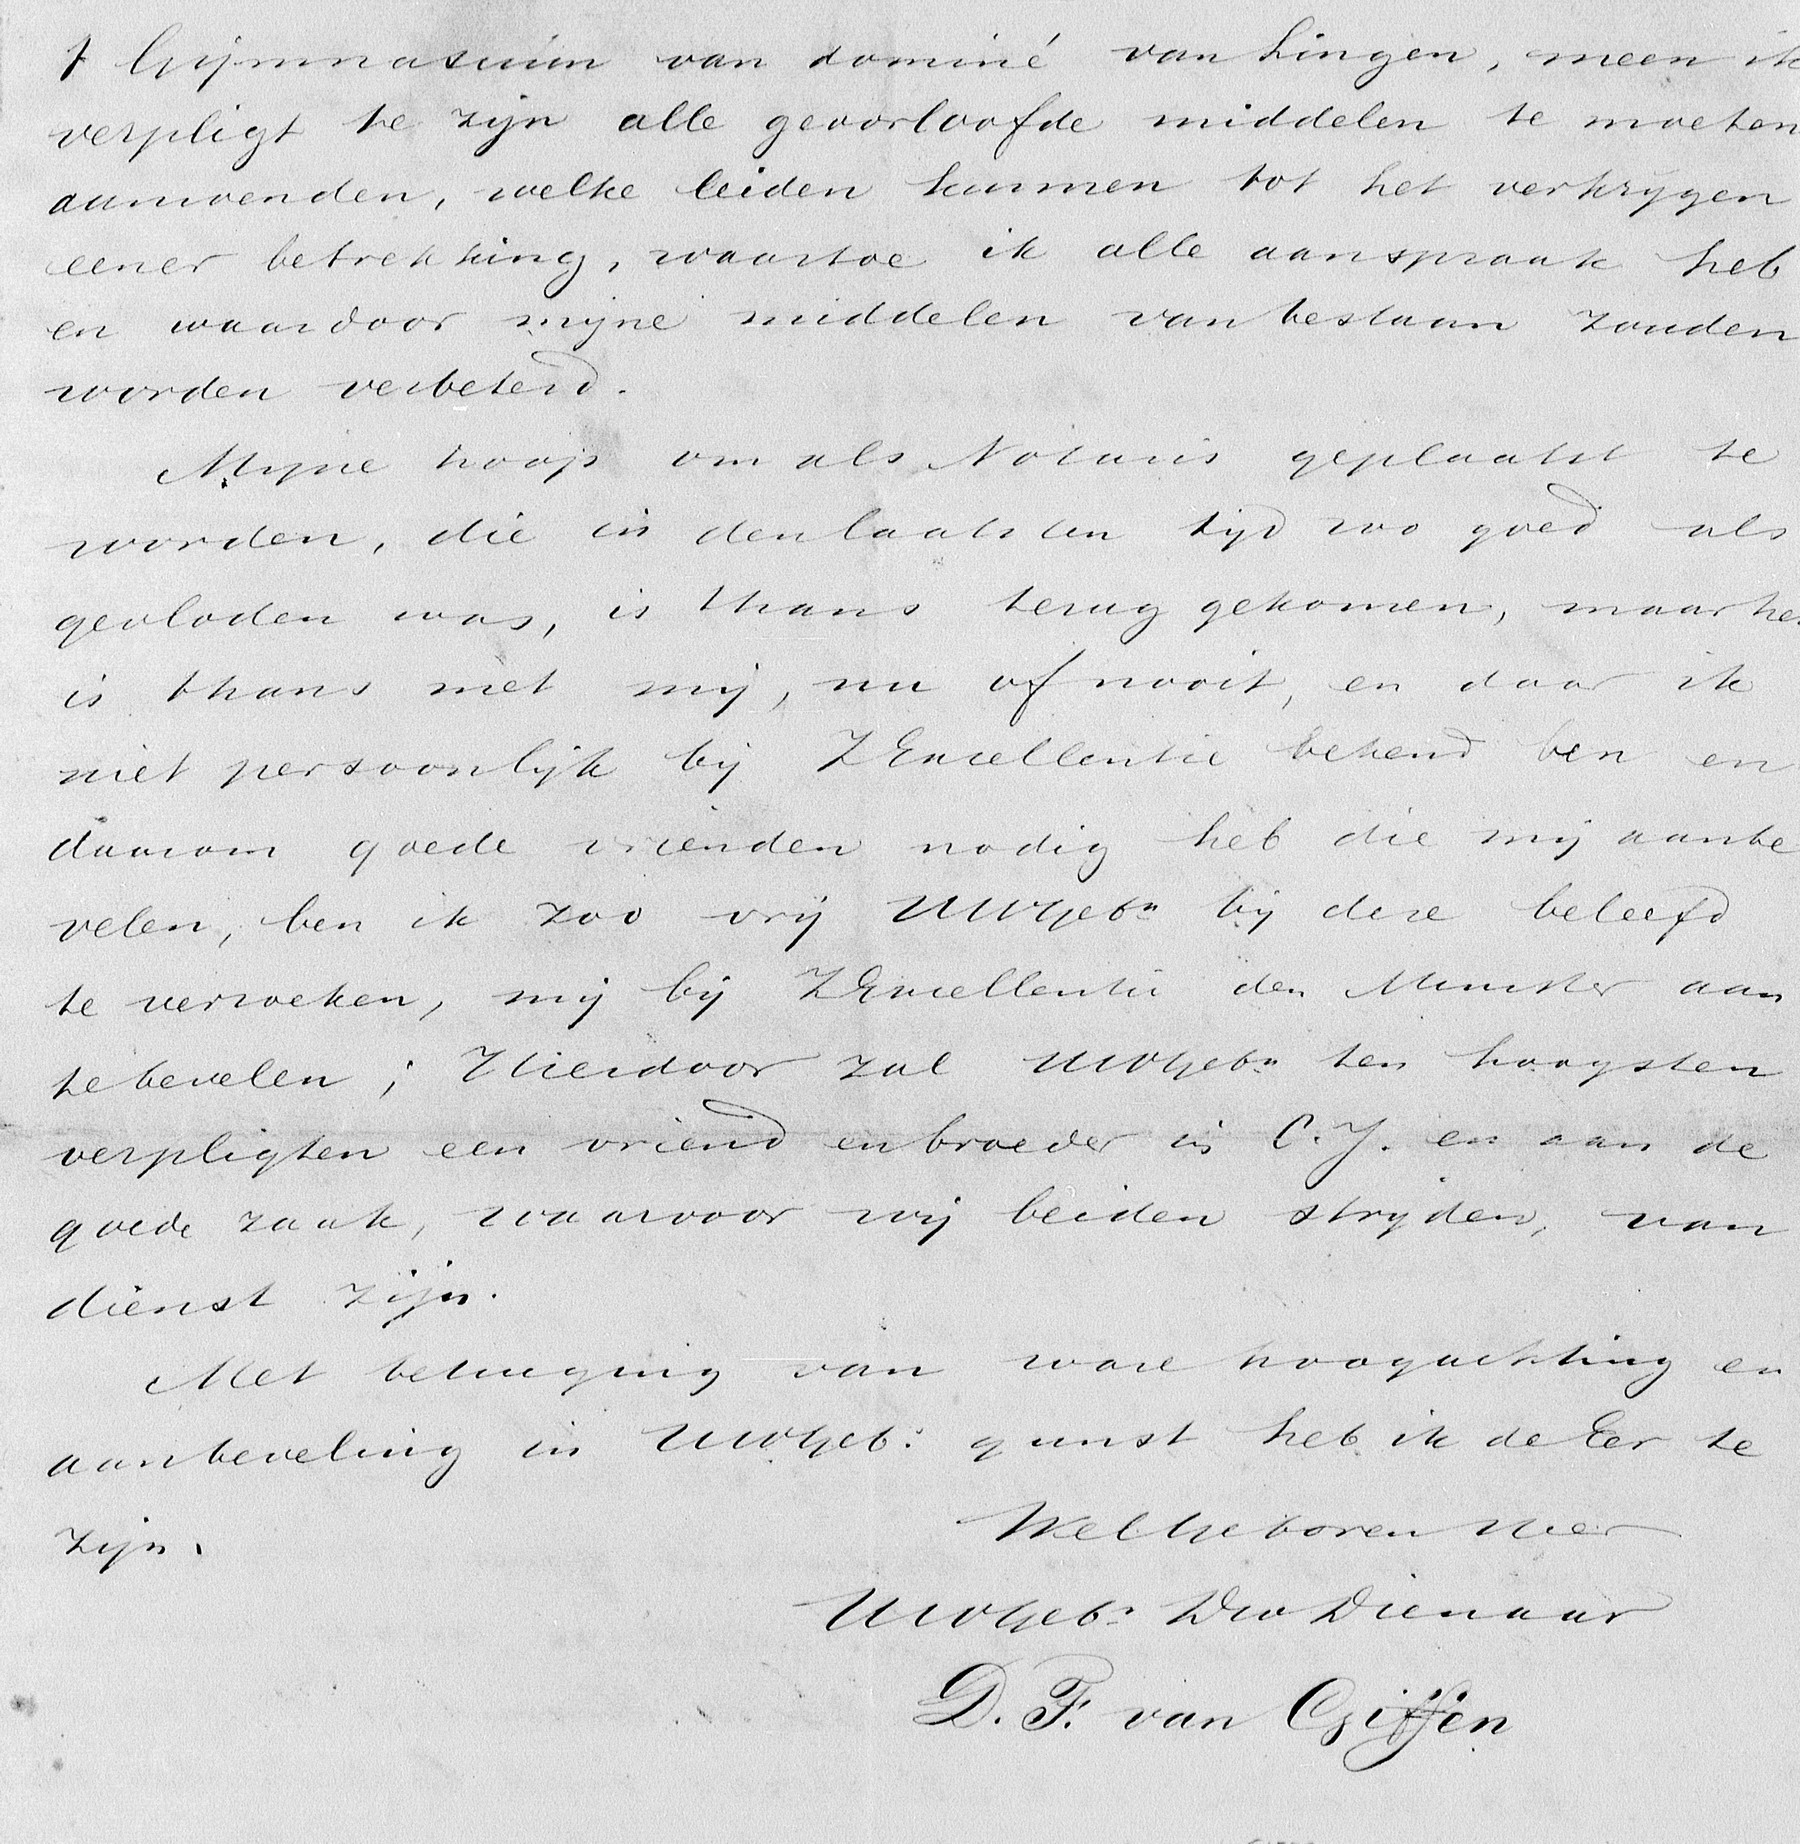 't Gijmnasium van dominé van Lingen, meen ik
verpligt te zijn alle geoorloofde middelen te moeten
aanwenden, welke leiden kunnen tot het verkrygen
eener betrekking, waartoe ik alle aanspraak heb
en waardoor mijne middelen van bestaan zouden
worden verbeterd.
Myne hoop om als Notaris geplaatst te
worden, die in den laatsten tyd zoo goed als
gevloden was, is thans terug gekomen, maar het
is thans met mij, nu of nooit, en daar ik
niet persoonlijk bij ZExcellentie bekend ben en
daarom goede vrienden nodig heb die mij aanbe
velen, ben ik zoo vrij UWGebn bij deze beleefd
te verzoeken, mij bij ZExcellentie den Minister aan
te bevelen; Hierdoor zal UWGebn ten hoogsten
verpligten een vriend en broeder in C.J. en aan de
goede zaak, waarvoor wij beiden stryden, van
dienst zijn.
Met betuiging van ware hoogachting en
aanbeveling in UWGeb: gunst heb ik de Eer te
zijn.
WelGeboren Heer
UWGebs Dw Dienaar
D. F. van Giffen